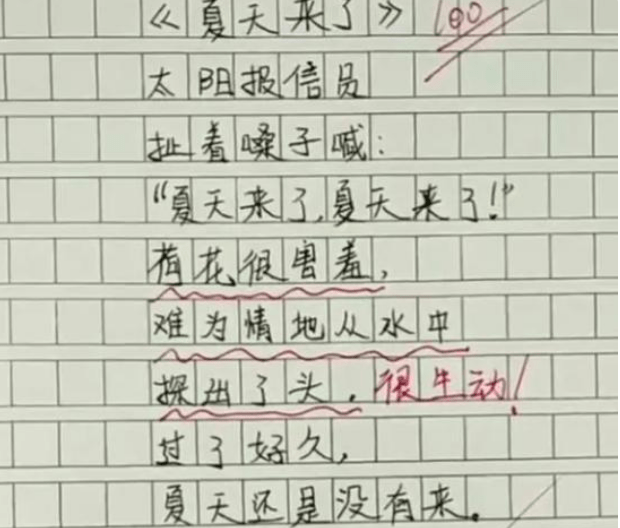 《夏天来了》 100
太阳报信员
扯着嗓子喊：
“夏天来了，夏天来了！”
荷花很害羞，
难为情地从水中
探出了头。很生动！
过了好久，
夏天还是没有来。